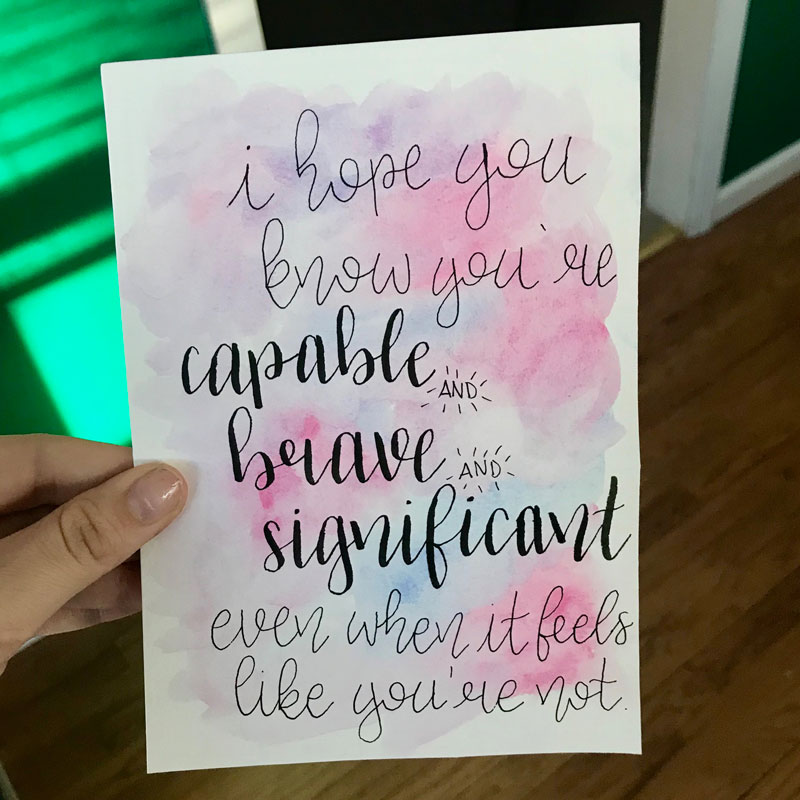 i hope you
know you're
capable AND
brave AND
significant
even when it feels
like you're not.